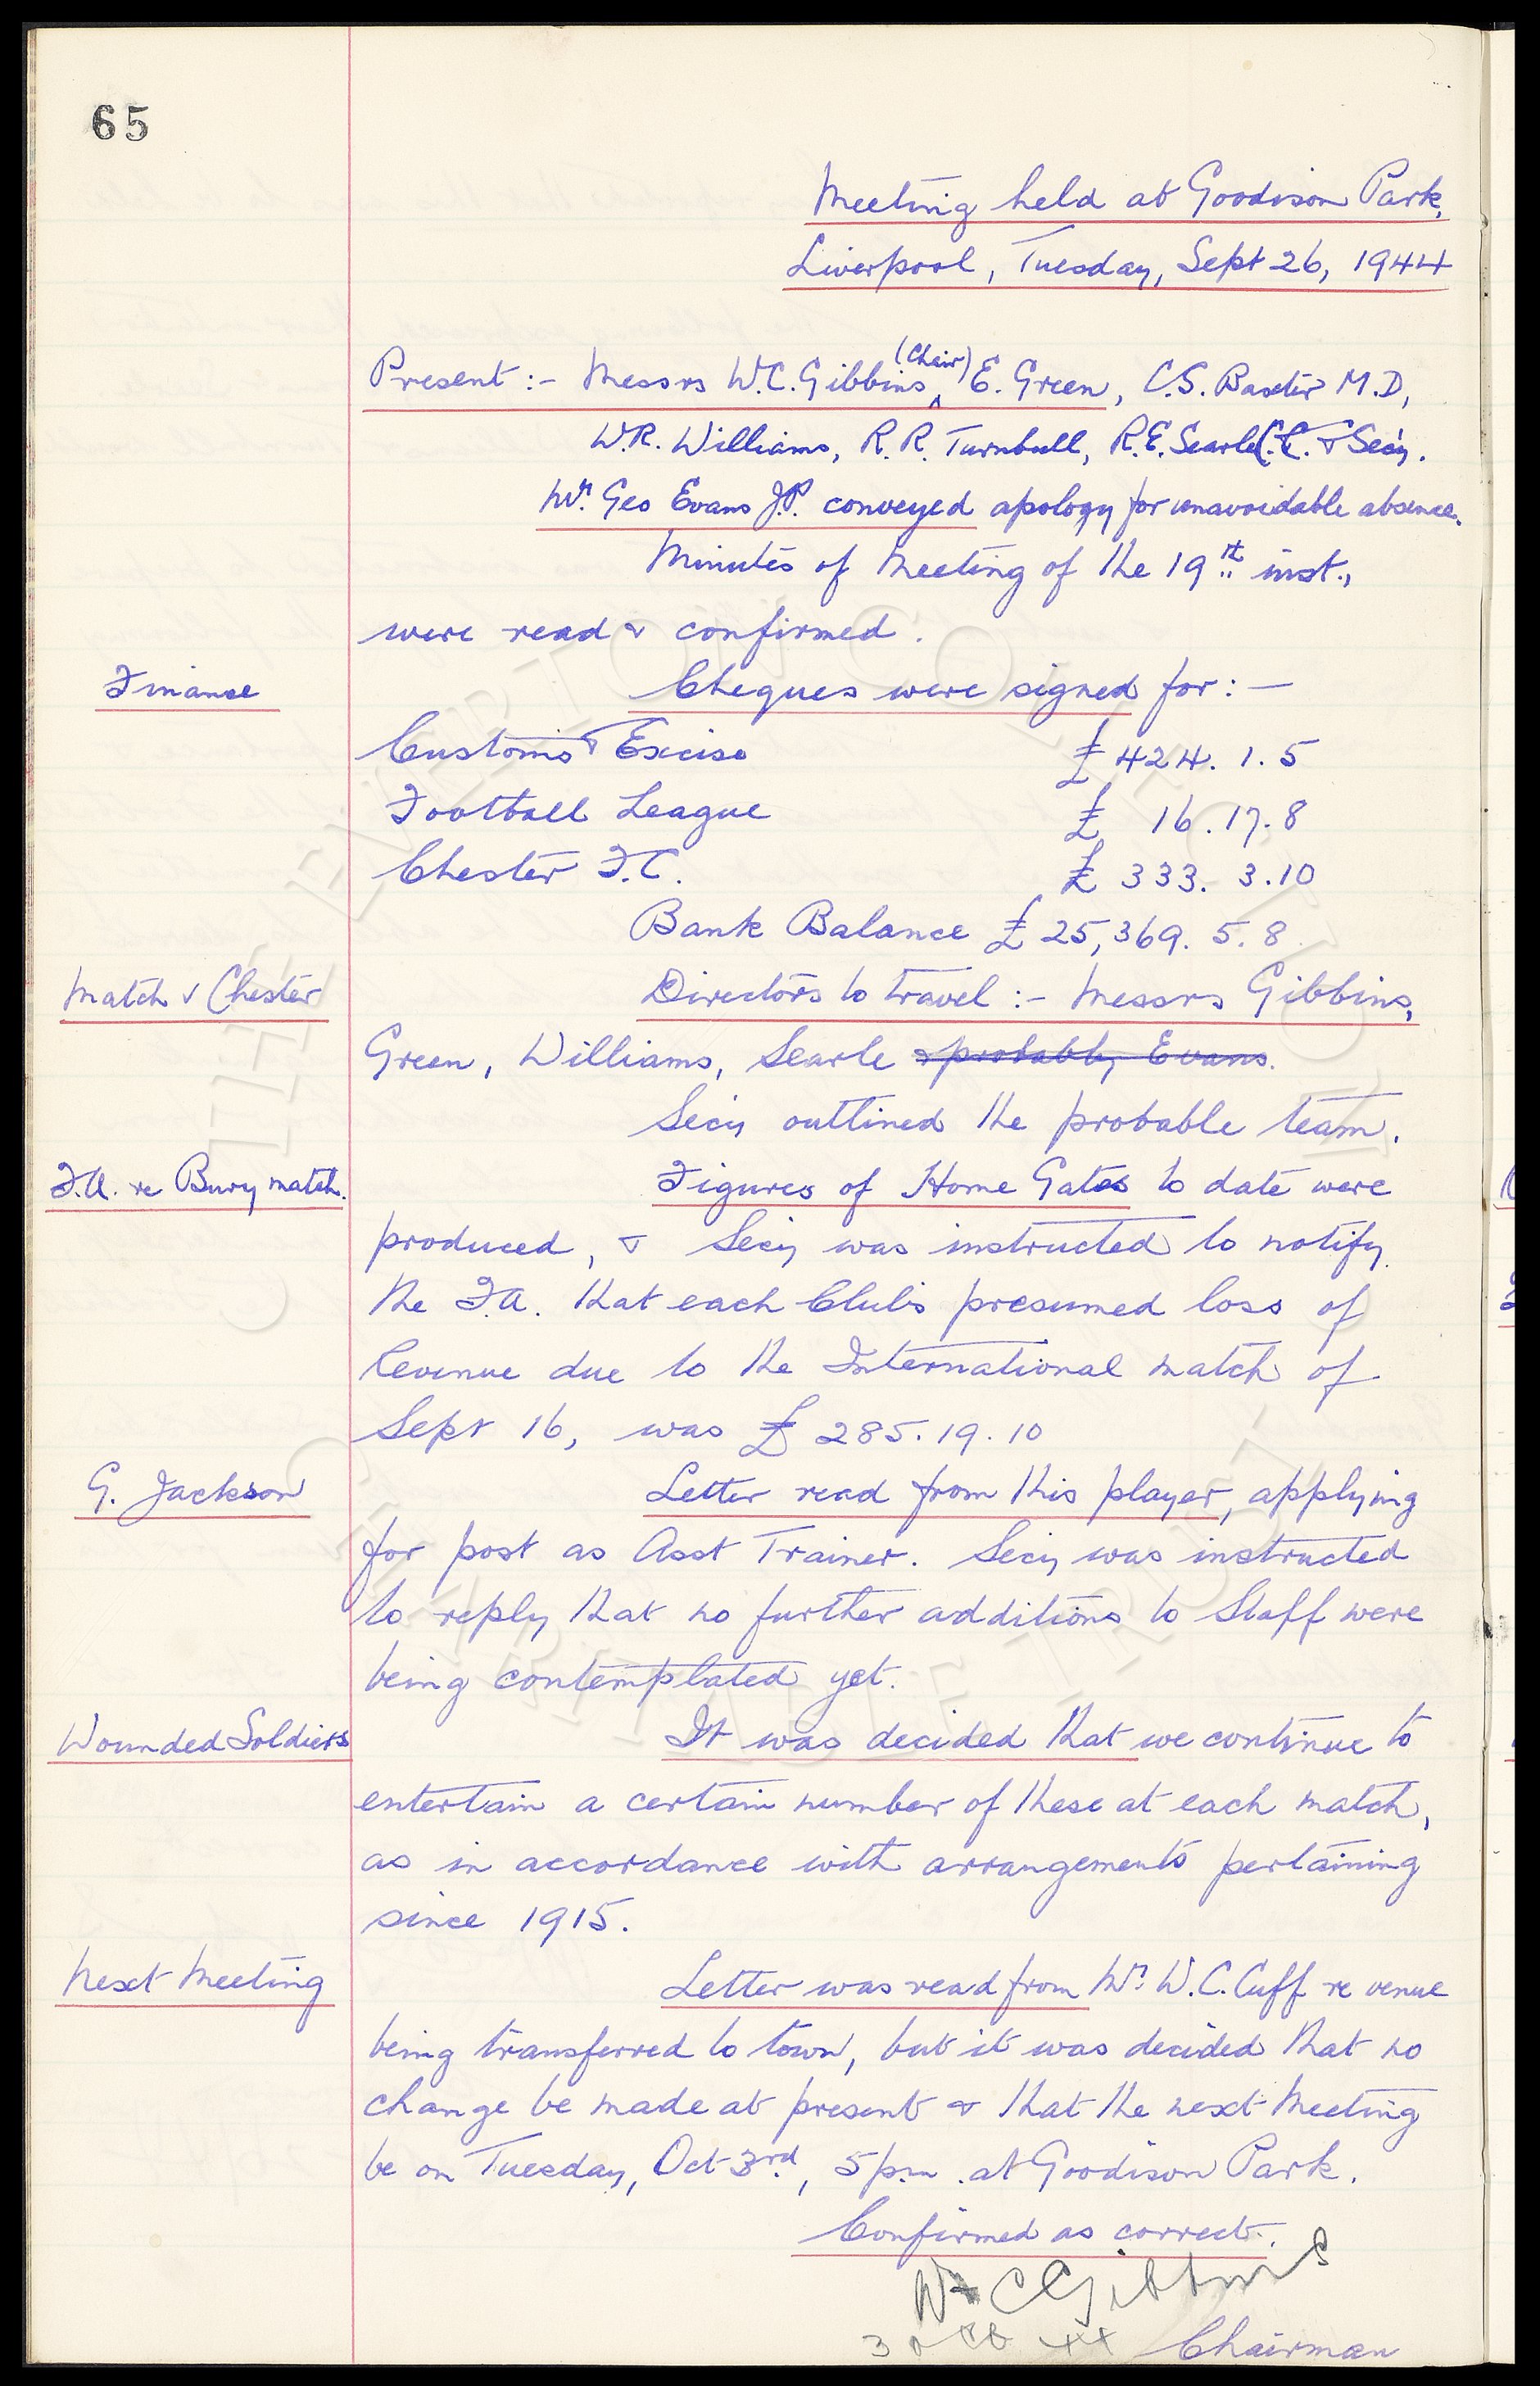 65
Meeting held at Goodison Park,
Liverpool, Tuesday, Sept 26, 1944
Present :- Messrs W.C. Gibbins (Chair) E. Green, C.S. Baxter M.D,
W.R. Williams, R.R. Turnbull, R.E. Searle & Secy.
Mr. Geo Evans J.P. conveyed apology for unavoidable absence.
Minutes of Meeting of the 19th inst.,
were read & confirmed.
Finance
Cheques were signed for:-
Customs & Excise £ 424. 1. 5
Football League £ 16. 17. 8
Chester F.C. £ 333. 3. 10
Bank Balance £ 25,369. 5. 8
Match v Chester
Directors to travel :- Messrs Gibbins,
Green, Williams, Searle & probably Evans.
Secy outlined the probable team.
F.A. re Bury match.
Figures of Home Gates to date were
produced, & Secy was instructed to notify
the F.A. that each Club's presumed loss of
Revenue due to the International match of
Sept 16, was £ 285. 19. 10
G. Jackson
Letter read from this player, applying
for post as Asst Trainer. Secy was instructed
to reply that no further additions to Staff were
being contemplated yet.
Wounded Soldiers
It was decided that we continue to
entertain a certain number of these at each match,
as in accordance with arrangements pertaining
since 1915.
Next Meeting
Letter was read from Mr. W.C. Cuff re venue
being transferred to town, but it was decided that no
change be made at present & that the next Meeting
be on Tuesday, Oct 3rd, 5 p.m. at Goodison Park.
Confirmed as correct.
W C Gibbins
3 Oct 44 Chairman
EVERTON COLLECTION CHARITABLE TRUST